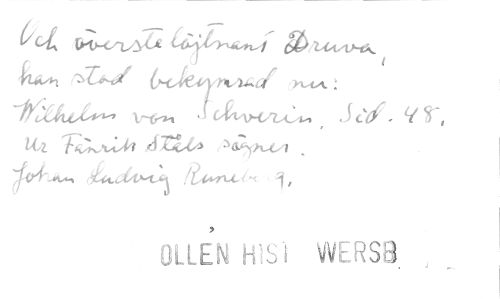 Och överstelöjtnant Druva,
han stod bekymrad nu:
Wilhelm von Schverin. Sid. 48.
Ur Fänrik Ståls sägner.
Johan Ludvig Runeberg.
OLLÉN HIST WERSB